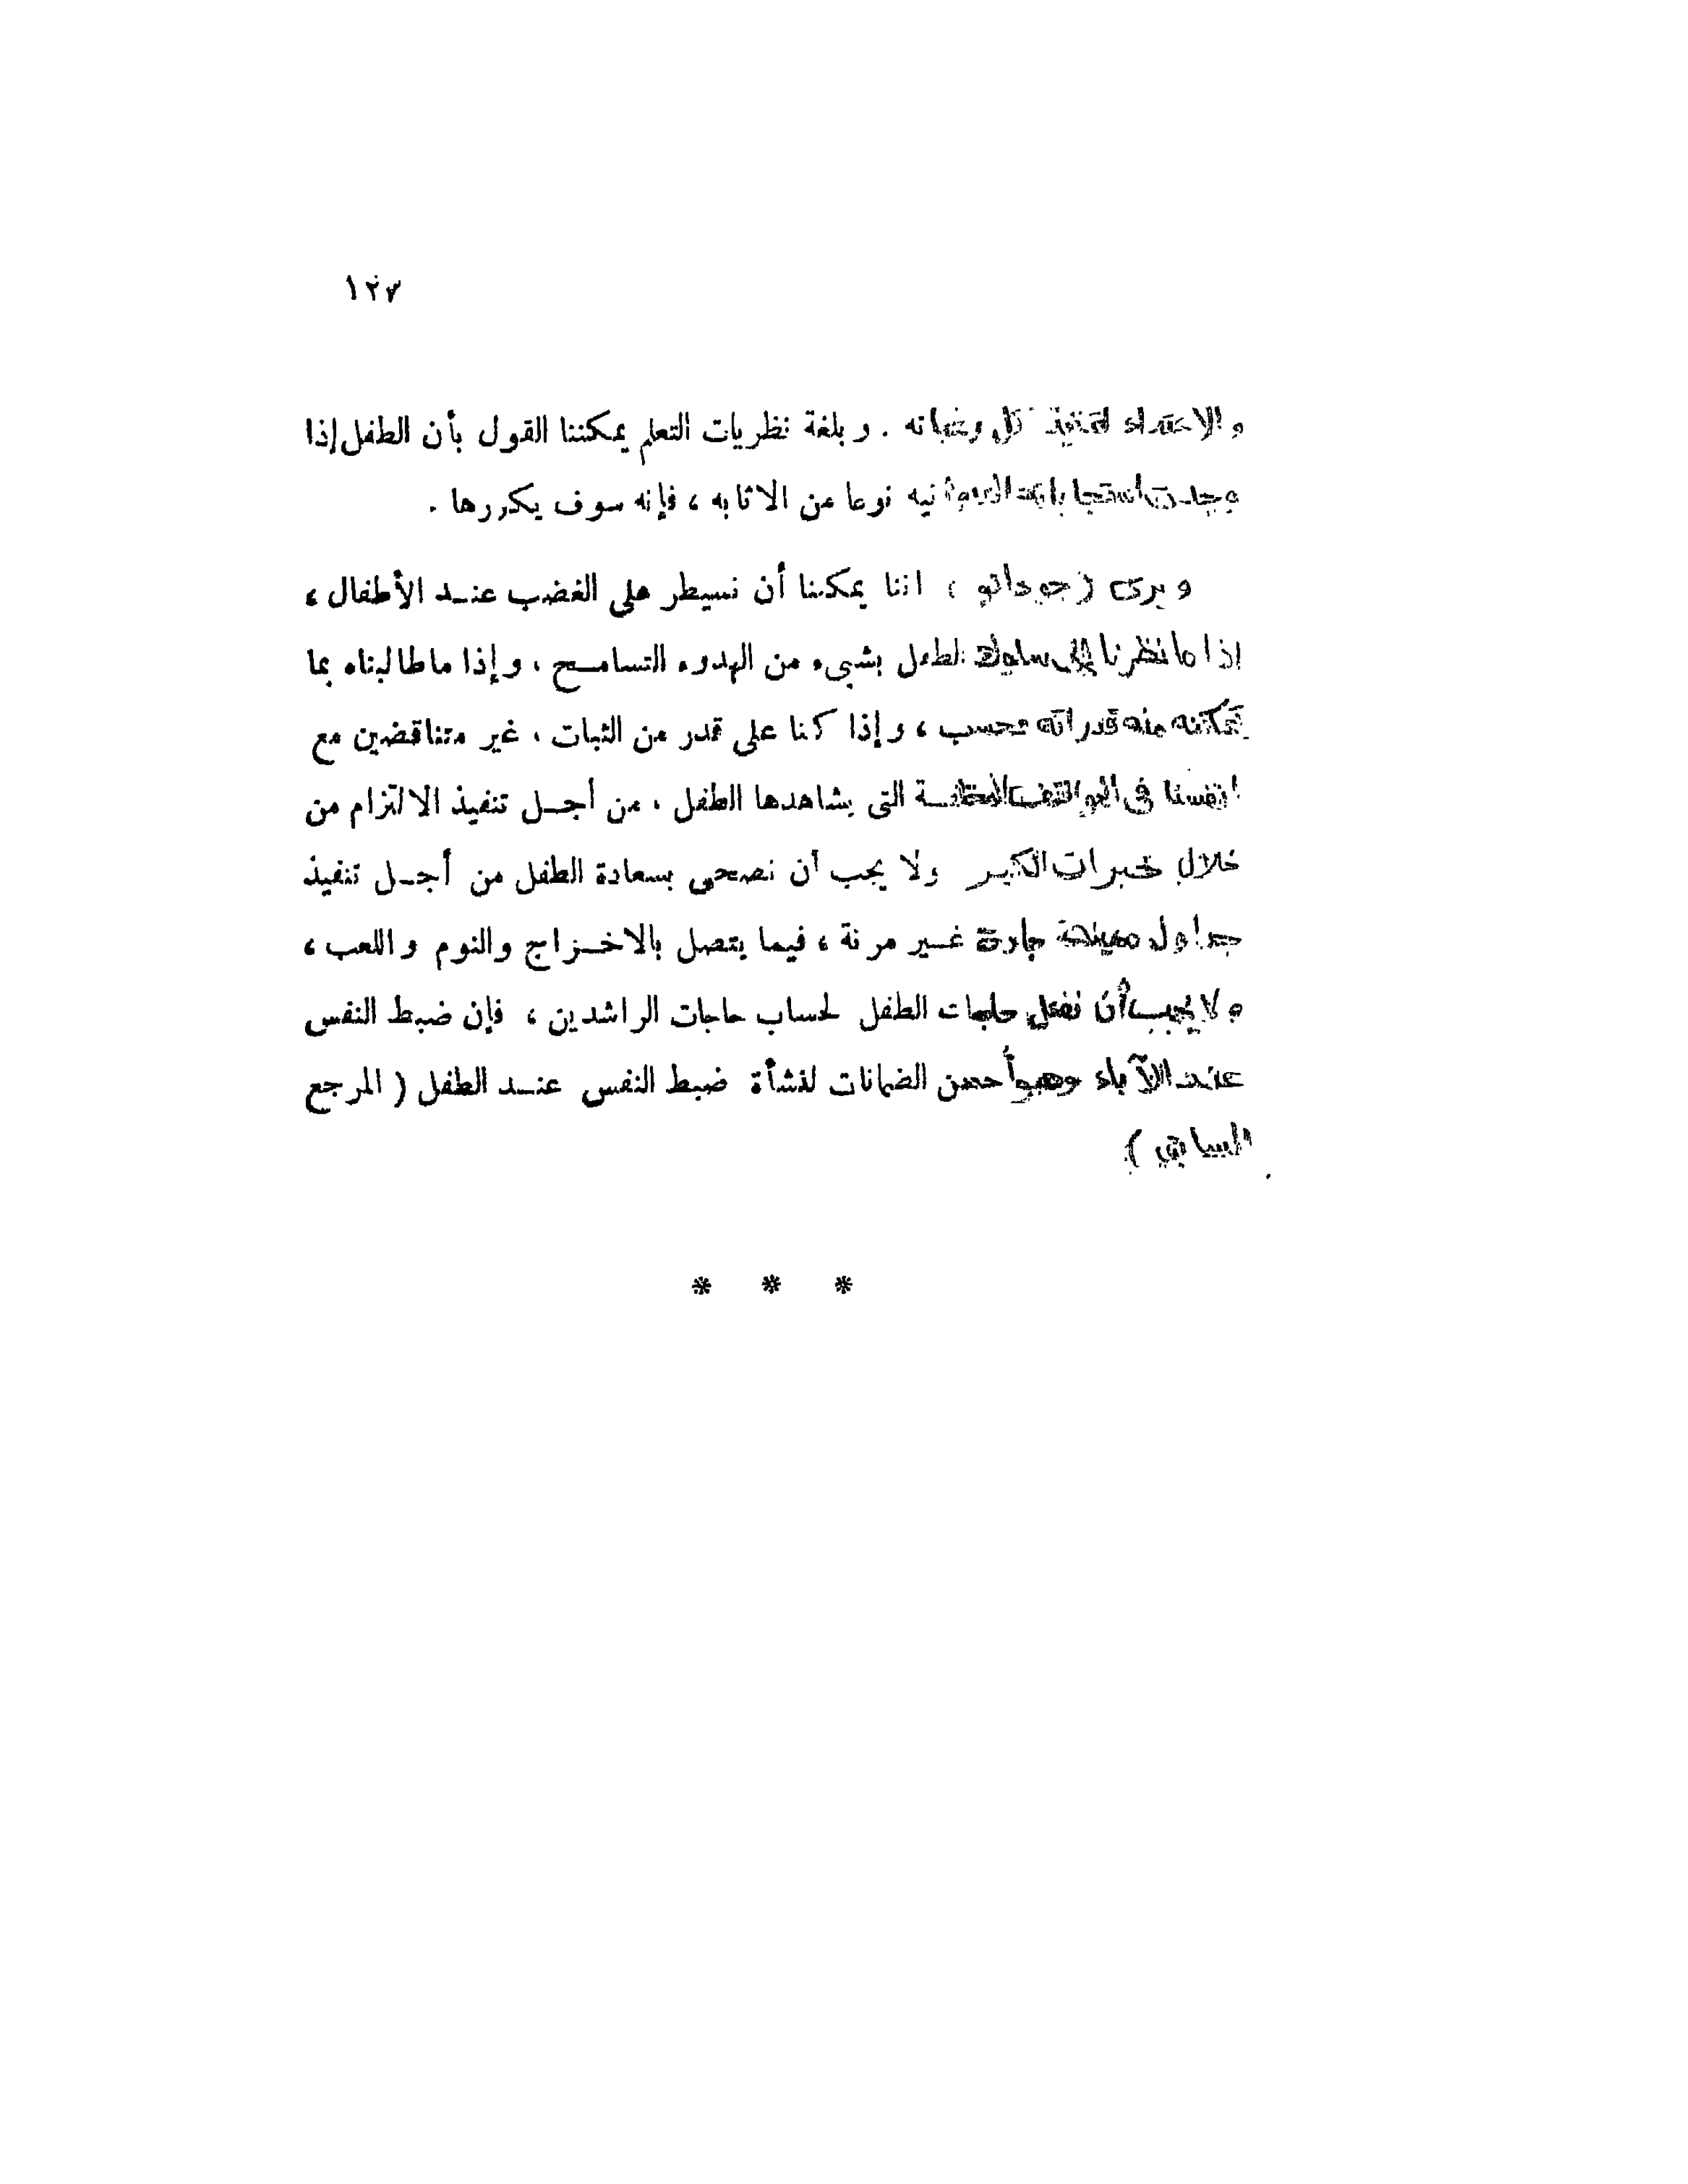 ١٢٣
والاعتداء لتنفيذ كل رغباته . وبلغة نظريات التعلم يمكننا القول بأن الطفل إذا
وجدت استجاباته العدوانيه نوعا من الاثابه ، فإنه سوف يكررها .
ويرى ( جودانو ) اننا يمكننا أن نسيطر على الغضب عنـد الأطفال ،
إذا ما نظرنا إلى سلوك الطفل بشىء من الهدوء التسامـح ، وإذا ما طالبناه بما
تمكنه منه قدراته فحسب ، وإذا كنا على قدر من الثبات ، غير متناقضين مع
انفسنا فى المواقف المختلفـة التى يشاهدها الطفل ، من أجـل تنفيذ الالتزام من
خلال خبرات الكبير ولا يجب أن نضحى بسعادة الطفل من أجـل تنفيذ
جداول معينة جامدة غـير مرنة ، فيما يتصل بالاخـراج والنوم واللعب ،
ولا يجب أن نغفل حاجات الطفل لحساب حاجات الراشدين ، فإن ضبط النفس
عند الآباء وهو أحسن الضمانات لنشأة ضبط النفس عنـد الطفل ( المرجع
السابق )
* * *